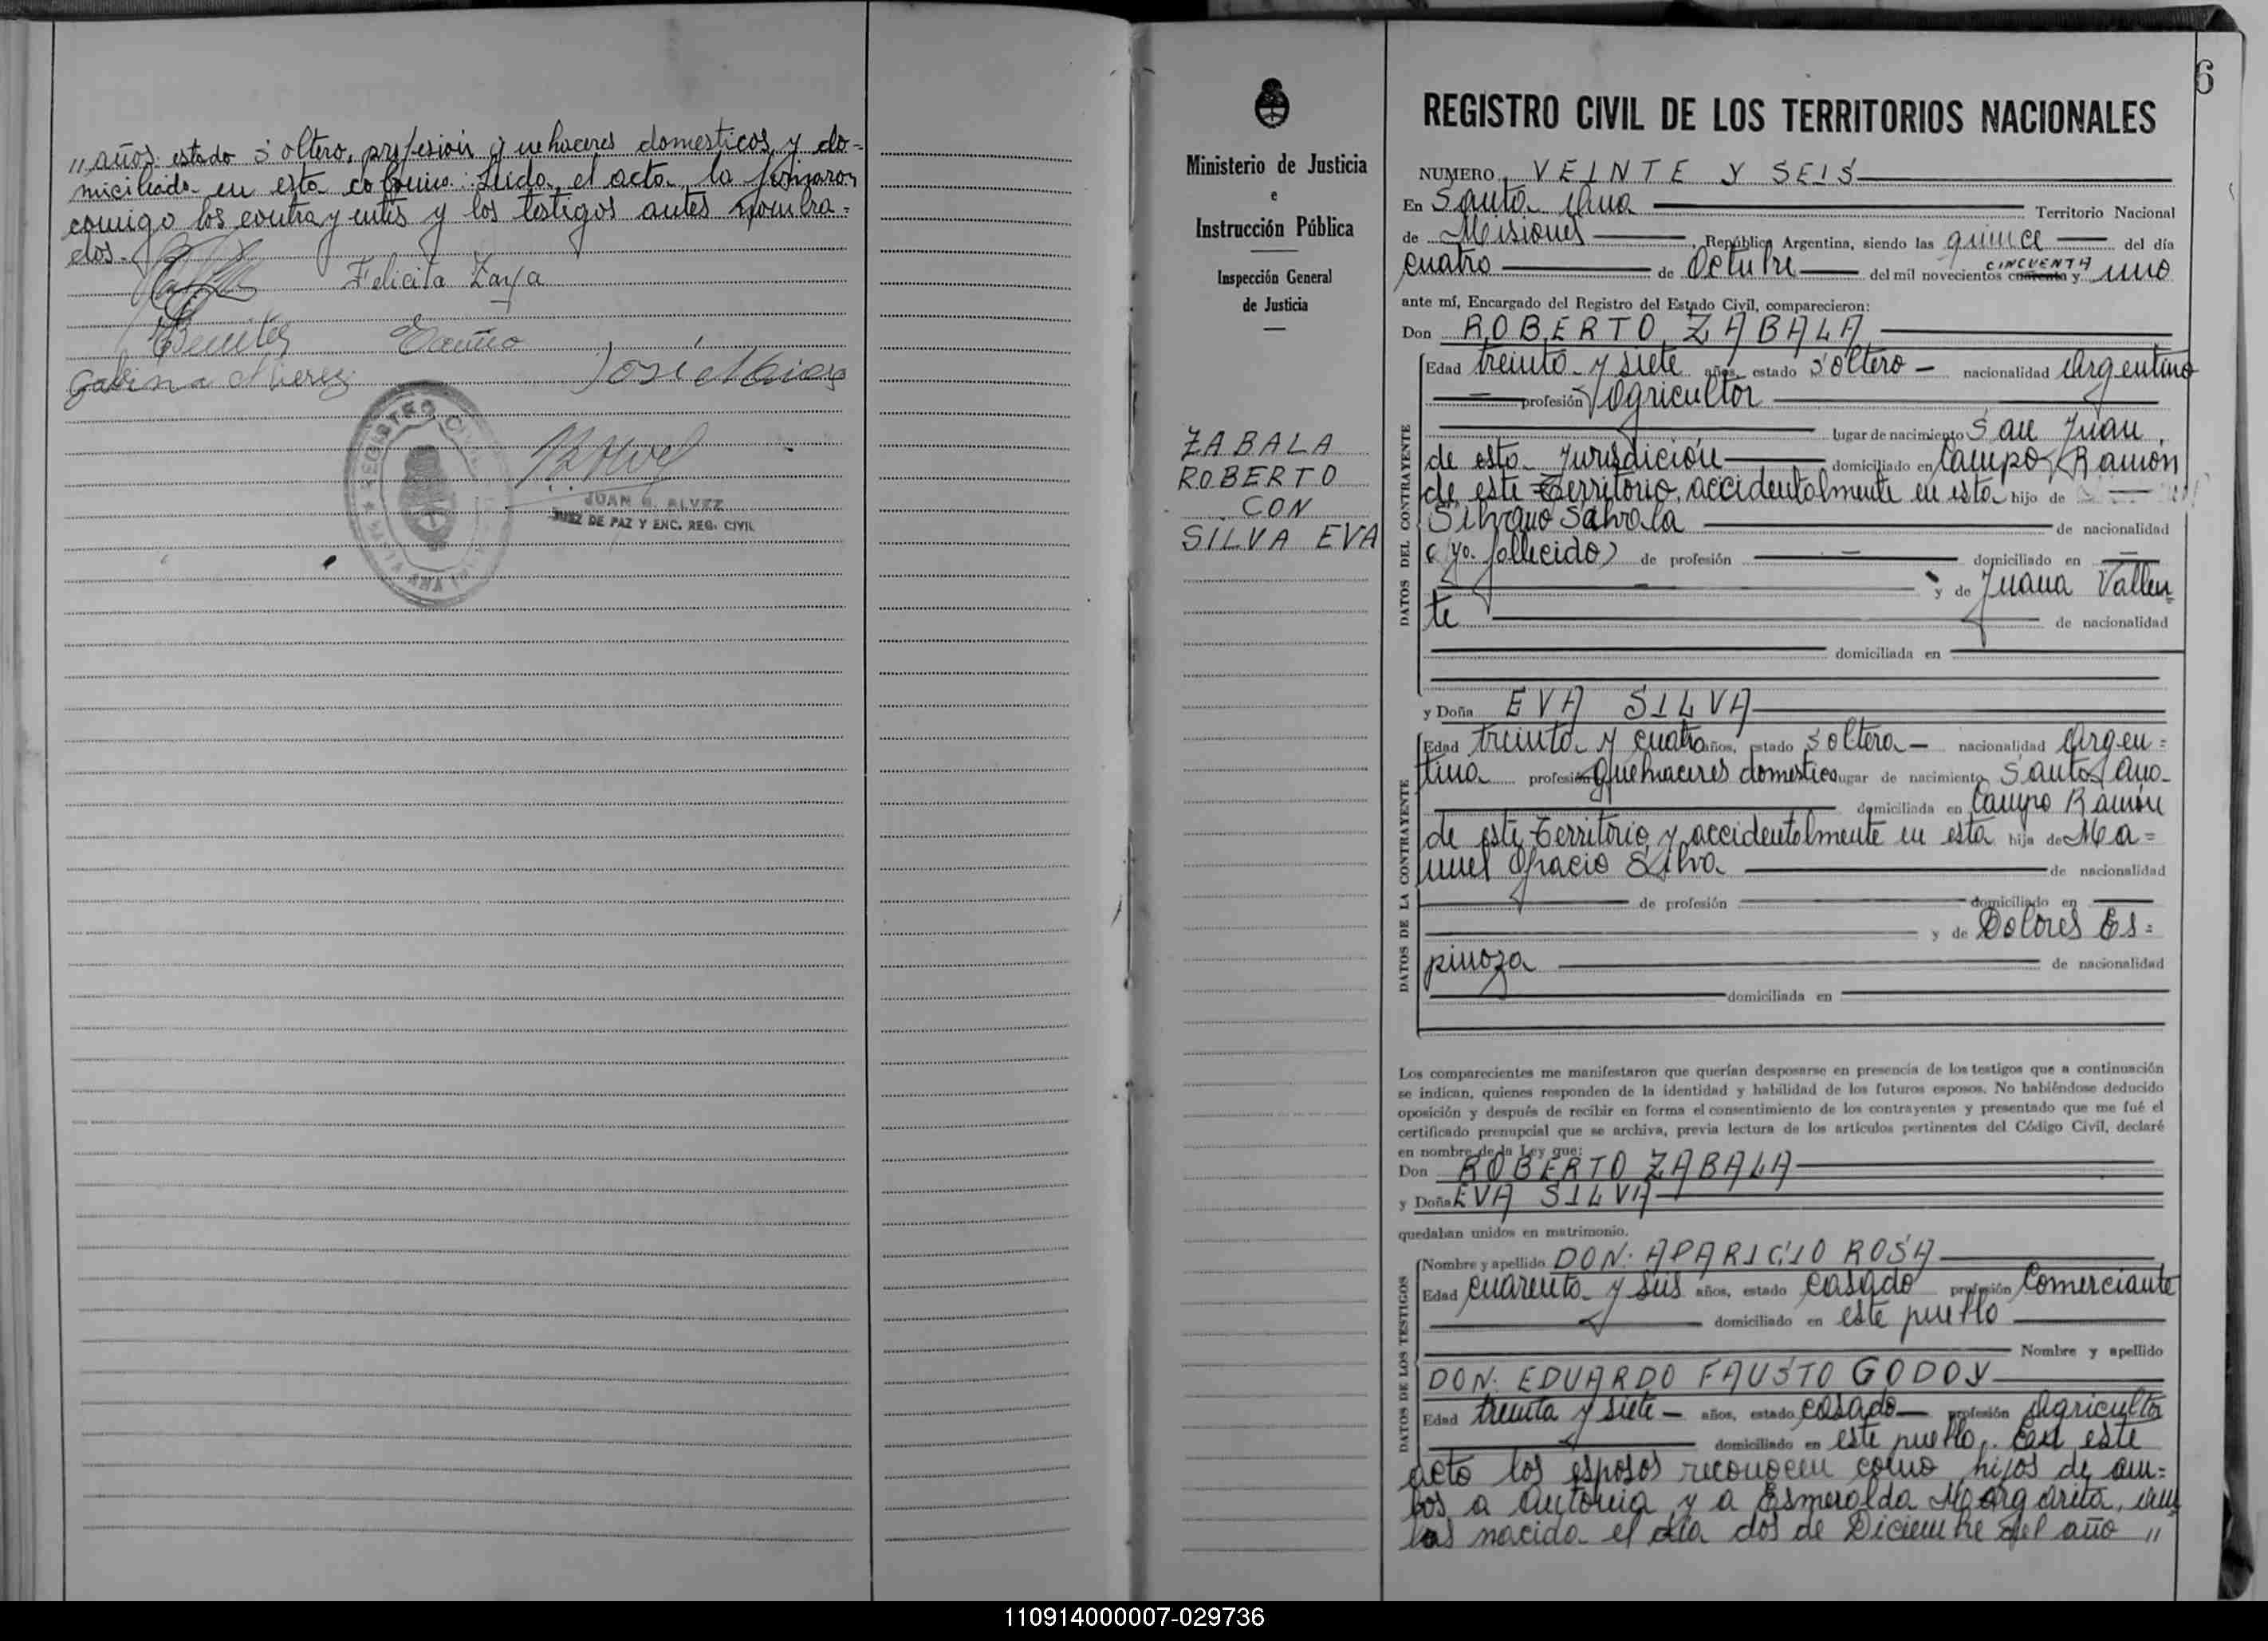 „ años estado soltero, profesión quehaceres domesticos y do-
miciliada en esta colonia. Leida el acta la firmaron
conmigo los contrayentes y los testigos antes nombra-
dos.
Felicita Zaya
Benitez
Gabina Mierez José
REGISTRO CIVIL
JUAN B. ALVEZ
JUEZ DE PAZ Y ENC. REG. CIVIL
Ministerio de Justicia
e
Instrucción Pública
Inspección General
de Justicia
ZABALA
ROBERTO
CON
SILVA EVA
6
REGISTRO CIVIL DE LOS TERRITORIOS NACIONALES
NUMERO VEINTE Y SEIS
En Santa Ana Territorio Nacional
de Misiones, República Argentina, siendo las quince del día
cuatro de Octubre del mil novecientos cuarenta y CINCUENTA uno
ante mí, Encargado del Registro del Estado Civil, comparecieron:
Don ROBERTO ZABALA
DATOS DEL CONTRAYENTE
Edad treinta y siete años, estado soltero - nacionalidad Argentino
profesión Agricultor
lugar de nacimiento San Juan,
de esta Jurisdición domiciliado en Campo Ramón
de este Territorio, accidentalmente en esta hijo de
Silvano Sabvala de nacionalidad
(ya fallecido) de profesión domiciliado en
y de Juana Vallen-
te de nacionalidad
domiciliada en
y Doña EVA SILVA
DATOS DE LA CONTRAYENTE
Edad treinta y cuatro años, estado soltera - nacionalidad Argen=
tina profesión quehaceres domestico lugar de nacimiento Santa Ana
domiciliada en Campo Ramón
de este Territorio y accidentalmente en esta hija de Ma=
nuel Gracio Silva de nacionalidad
de profesión domiciliado en
y de Dolores Es=
pinoza de nacionalidad
domiciliada en
Los comparecientes me manifestaron que querían desposarse en presencia de los testigos que a continuación
se indican, quienes responden de la identidad y habilidad de los futuros esposos. No habiéndose deducido
oposición y después de recibir en forma el consentimiento de los contrayentes y presentado que me fué el
certificado prenupcial que se archiva, previa lectura de los artículos pertinentes del Código Civil, declaré
en nombre de la Ley que:
Don ROBERTO ZABALA
y Doña EVA SILVA
quedaban unidos en matrimonio.
DATOS DE LOS TESTIGOS
Nombre y apellido DON: APARICIO ROSA
Edad cuarenta y seis años, estado casado profesión Comerciante
domiciliado en este pueblo
Nombre y apellido
DON: EDUARDO FAUSTO GODOY
Edad treinta y siete - años, estado casado profesión Agricultor
domiciliado en este pueblo. En este
acto los esposos reconocen como hijos de am=
bos a Antonia y a Esmeralda Margarita, am=
bas nacida el día dos de Diciembre del año „
110914000007-029736